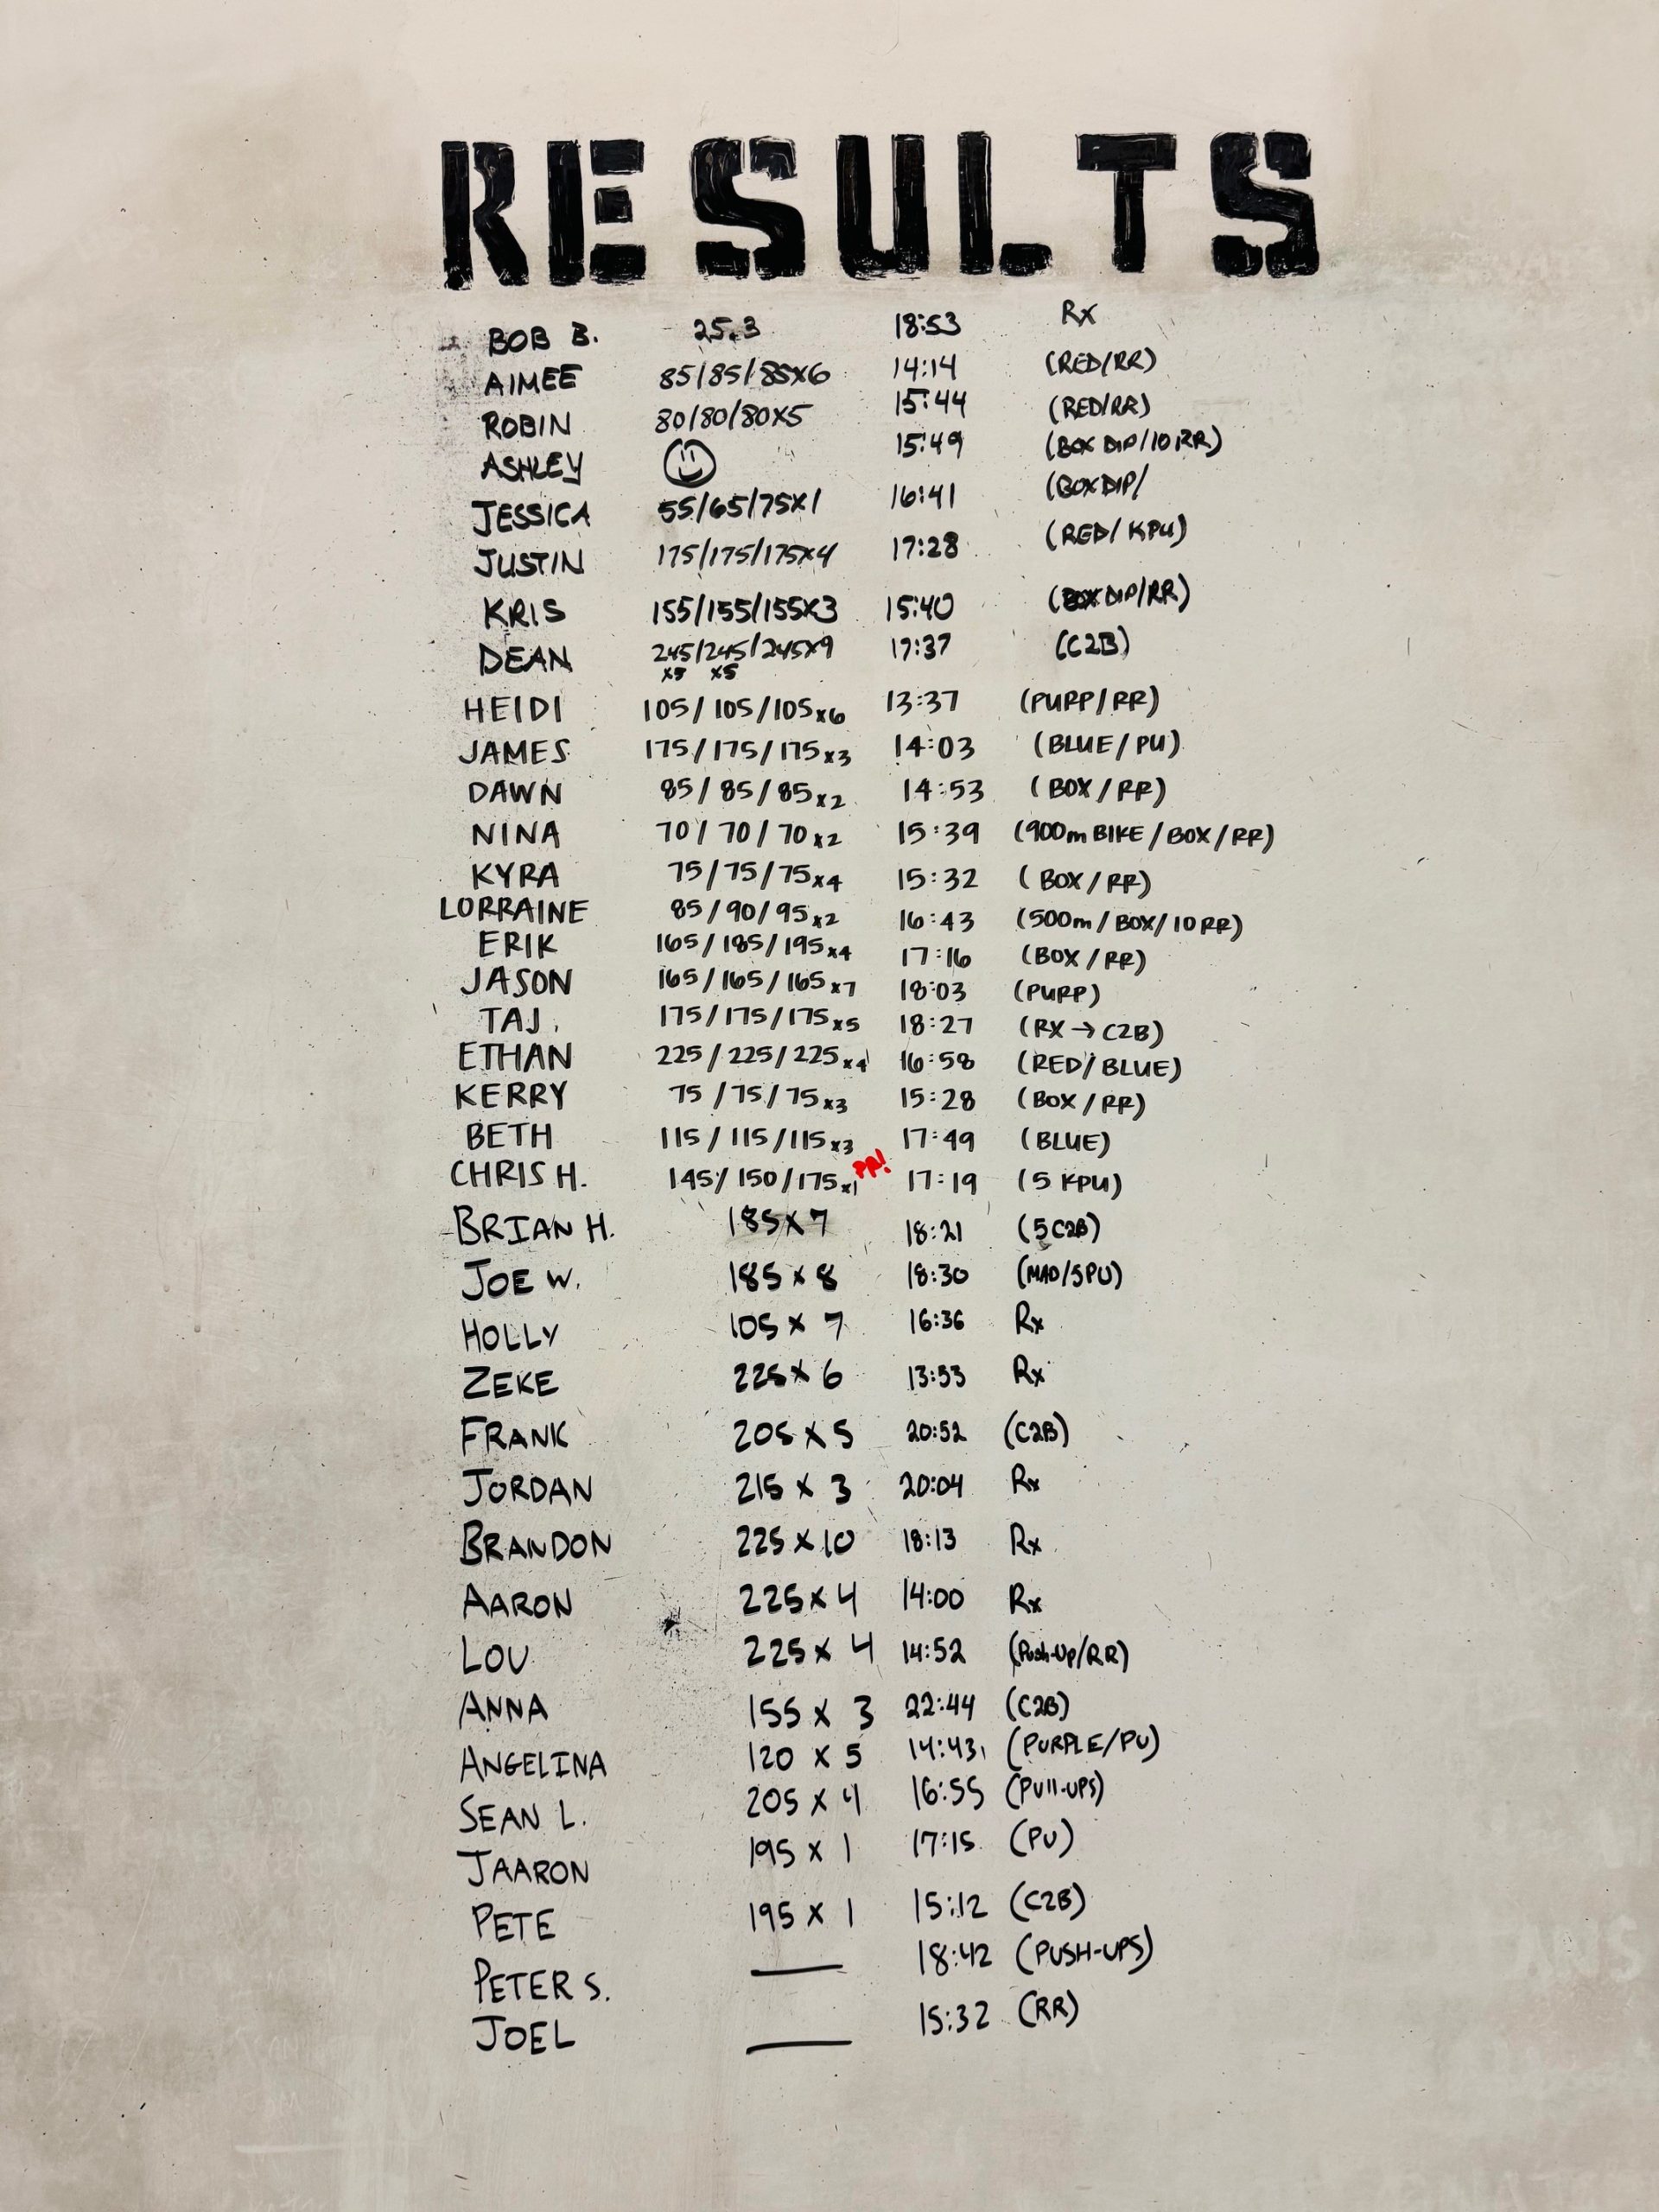 RESULTS
BOB B. 25.3 18:53 Rx
AIMEE 85/85/85x6 14:14 (RED/RR)
ROBIN 80/80/80x5 15:44 (RED/RR)
ASHLEY 15:49 (BOX DIP/10 RR)
JESSICA 55/65/75x1 16:41 (BOX DIP/
JUSTIN 175/175/175x4 17:28 (RED/KPU)
KRIS 155/155/155x3 15:40 (BOX DIP/RR)
DEAN 245/245/245x9 17:37 (C2B)
x5 x5
HEIDI 105/105/105x6 13:37 (PURP/RR)
JAMES 175/175/175x3 14:03 (BLUE/PU)
DAWN 85/85/85x2 14:53 (BOX/RR)
NINA 70/70/70x2 15:39 (900m BIKE/BOX/RR)
KYRA 75/75/75x4 15:32 (BOX/RR)
LORRAINE 85/90/95x2 16:43 (500m/BOX/10RR)
ERIK 165/185/195x4 17:16 (BOX/RR)
JASON 165/165/165x7 18:03 (PURP)
TAJ. 175/175/175x5 18:27 (RX→C2B)
ETHAN 225/225/225x4 16:58 (RED/BLUE)
KERRY 75/75/75x3 15:28 (BOX/RR)
BETH 115/115/115x3 17:49 (BLUE)
CHRIS H. 145/150/175x1 PR! 17:19 (5 KPU)
BRIAN H. 185x7 18:21 (5 C2B)
JOE W. 185x8 18:30 (MAO/5PU)
HOLLY 105x7 16:36 Rx
ZEKE 225x6 13:53 Rx
FRANK 205x5 20:52 (C2B)
JORDAN 215x3 20:04 Rx
BRANDON 225x10 18:13 Rx
AARON 225x4 14:00 Rx
LOU 225x4 14:52 (Push-Up/RR)
ANNA 155x3 22:44 (C2B)
ANGELINA 120x5 14:43 (PURPLE/PU)
SEAN L. 205x4 16:55 (PUll-UPS)
JAARON 195x1 17:15 (PU)
PETE 195x1 15:12 (C2B)
PETER S. — 18:42 (PUSH-UPS)
JOEL — 15:32 (RR)